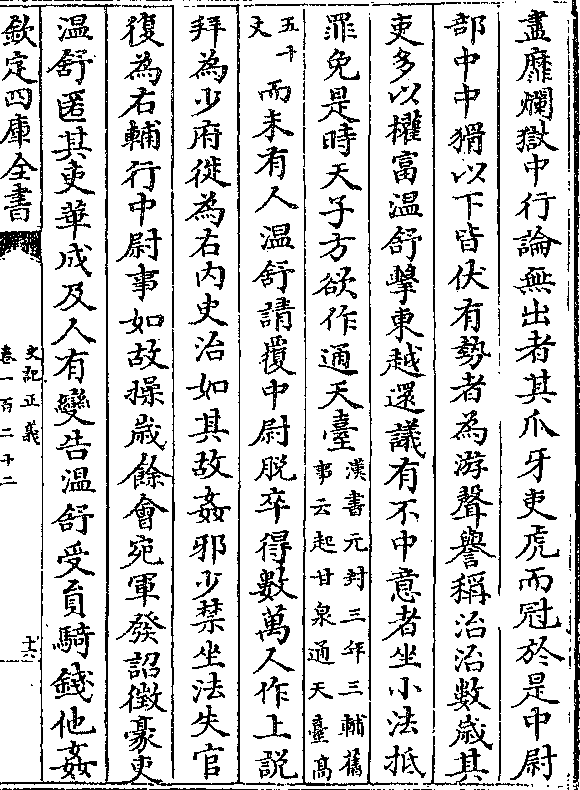 盡靡爛獄中行論無出者其爪牙吏虎而冠於是中尉
部中中猾以下皆伏有勢者為游聲譽稱治治數歲其
吏多以權富温舒擊東越還議有不中意者坐小法抵
罪免是時天子方欲作通天臺漢書元封三年三輔舊
事云起甘泉通天臺髙
五十
丈而未有人温舒請覆中尉脱卒得數萬人作上説
拜為少府徙為右内史治如其故姦邪少禁坐法失官
復為右輔行中尉事如故操歲餘會宛軍發詔徴豪吏
温舒匿其吏華成及人有變告温舒受員騎錢他姦
欽定四庫全書
史記正義
卷一百二十二